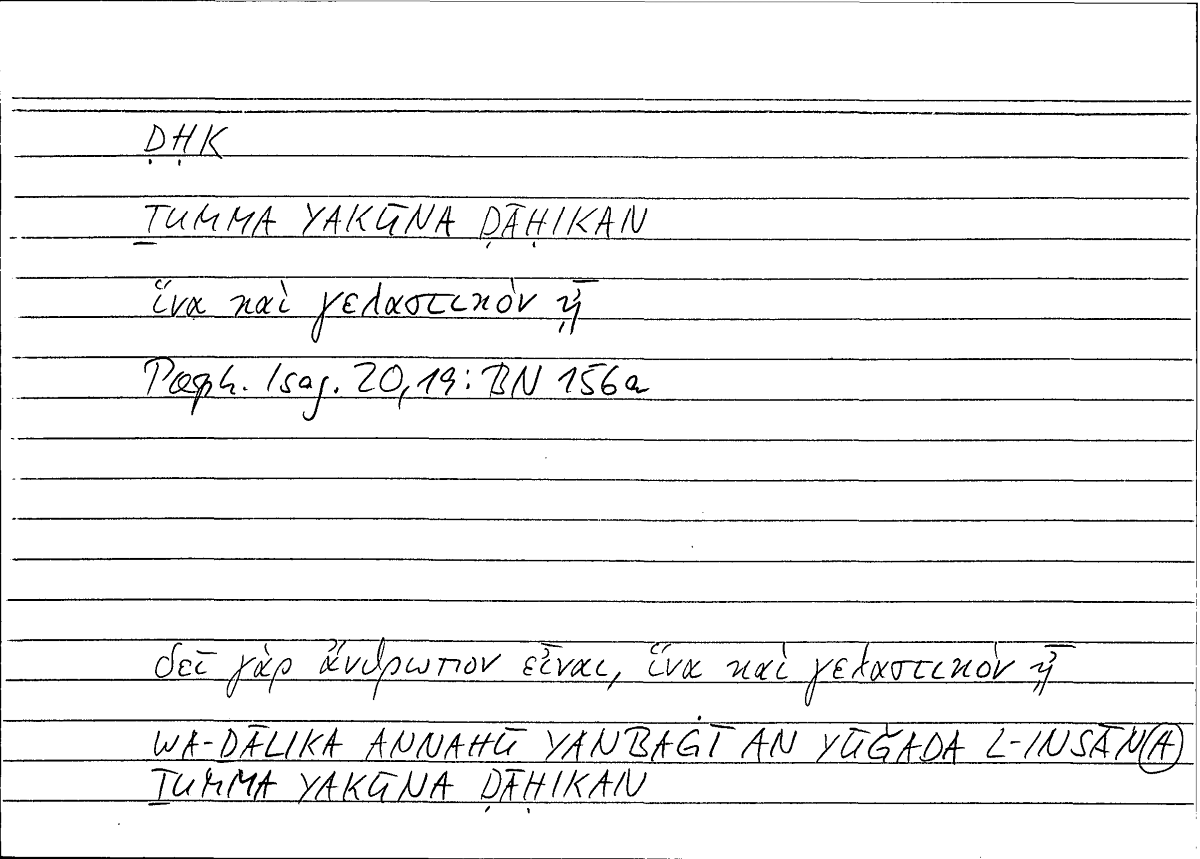 ḌḤK
ṮUMMA YAKŪNA ḌĀḤIKAN
ἵνα καὶ γελαστικὸν ᾖ
Porph. Isag. 20,19: BN 156a
δεῖ γὰρ ἄνθρωπον εἶναι, ἵνα καὶ γελαστικὸν ᾖ
WA-ḎĀLIKA ANNAHŪ YANBAĠĪ AN YŪǦADA L-INSĀN(A)
ṮUMMA YAKŪNA ḌĀḤIKAN